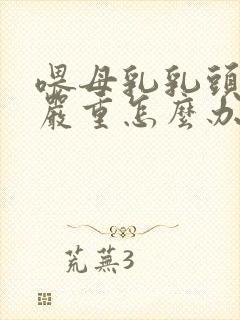 喂母乳乳頭
嚴重怎麼办
荒蕪3